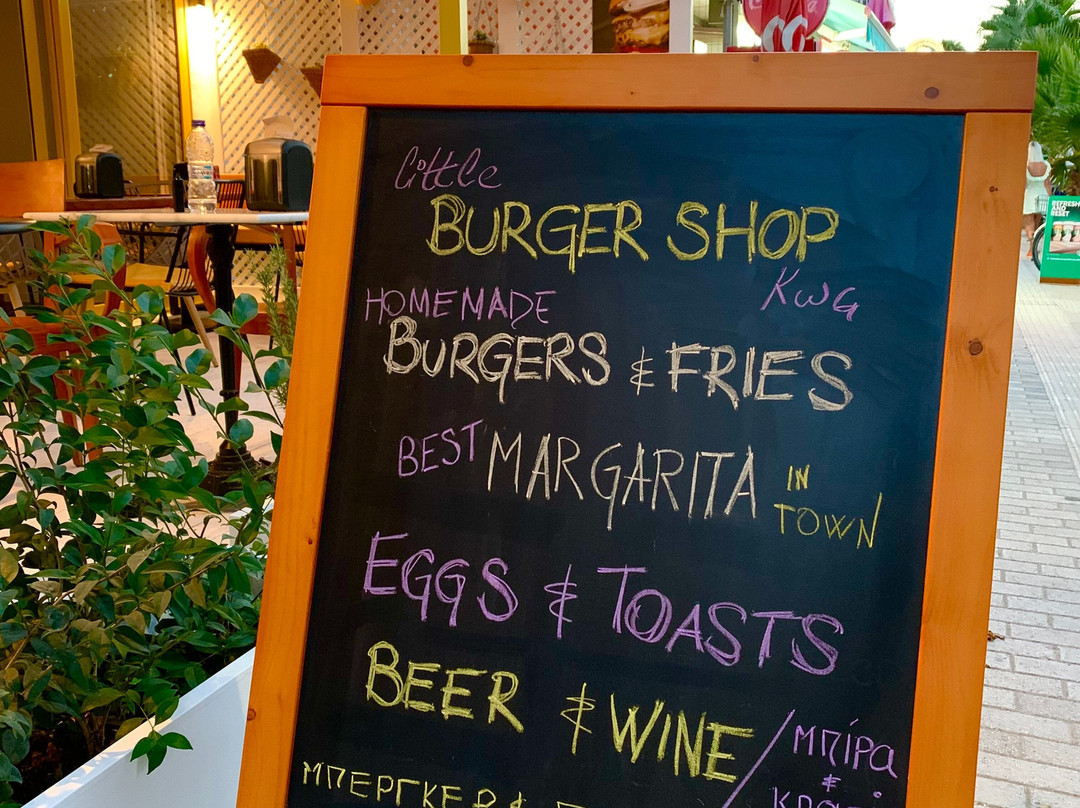 Little
BURGER SHOP
Κως
HOMEMADE
BURGERS & FRIES
BEST MARGARITA IN TOWN
EGGS & TOASTS
BEER & WINE / μπίρα
&
ΜΠΕΡΓΚΕΡ &
REFRESH
AND
RESET